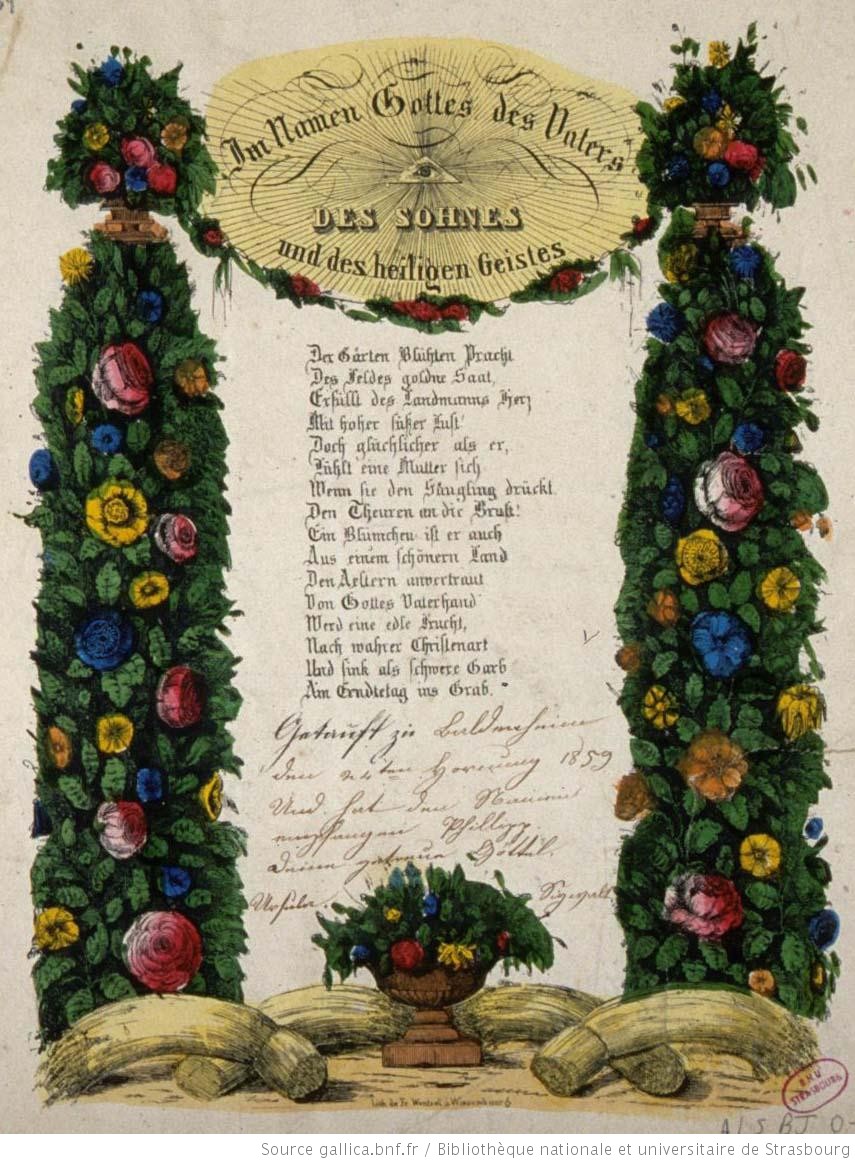 Im Namen Gottes des Vaters
DES SOHNES
und des heiligen Geistes
Der Gärten Blühten Pracht
Des Feldes goldne Saat,
Erfüllt des Landmanns Herz
Mit hoher süßer Lust!
Doch glücklicher als er,
Fühlt eine Mutter sich
Wenn sie den Säugling drückt
Den Theuren an die Brust!
Ein Blümchen ist er auch
Aus einem schönern Land
Den Aeltern anvertraut
Von Gottes Vaterhand
Werd eine edle Frucht,
Nach wahrer Christenart
Und sink als schwere Garb
Am Erndtetag ins Grab.
Getauft zu Baldenheim
den 24ten Hornung 1859
Und hat den Namen
empfangen Phillipp
Deine getreue Göttel.
Ursula Sigwalt
Lith. de Fr. Wentzel à Wissembourg
B.N.U
STRASBOURG
Source gallica.bnf.fr / Bibliothèque nationale et universitaire de Strasbourg